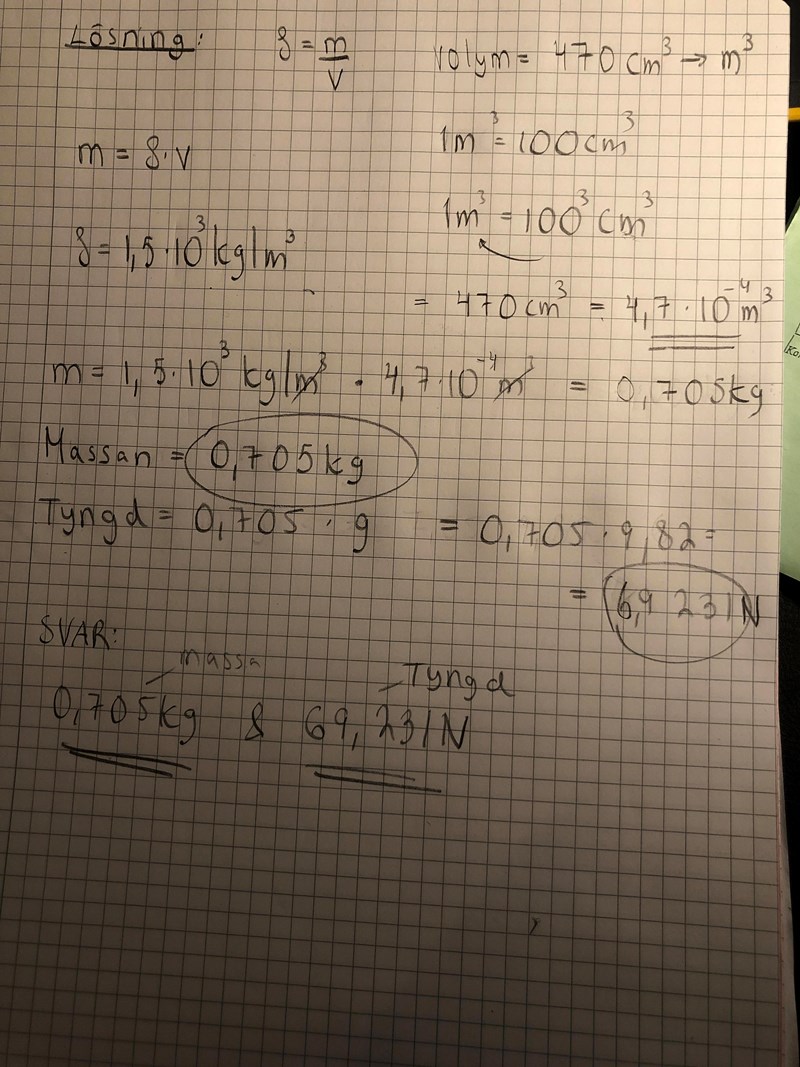 Lösning: ρ = m/V
volym = 470 cm³ → m³
1m³ = 100cm³
m = ρ·V
1m³ = 100³ cm³
ρ = 1,5·10³ kg/m³
= 470 cm³ = 4,7·10⁻⁴ m³
m = 1,5·10³ kg/m³ · 4,7·10⁻⁴ m³ = 0,705kg
Massan = 0,705kg
Tyngd = 0,705 · g = 0,705·9,82=
= 6,9 231N
SVAR:
massa
Tyngd
0,705kg & 69,231N